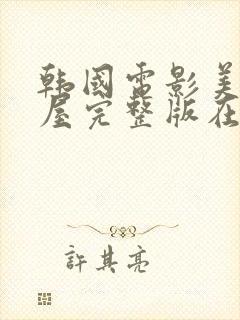 韩国电影美
屋完整版在
許其亮